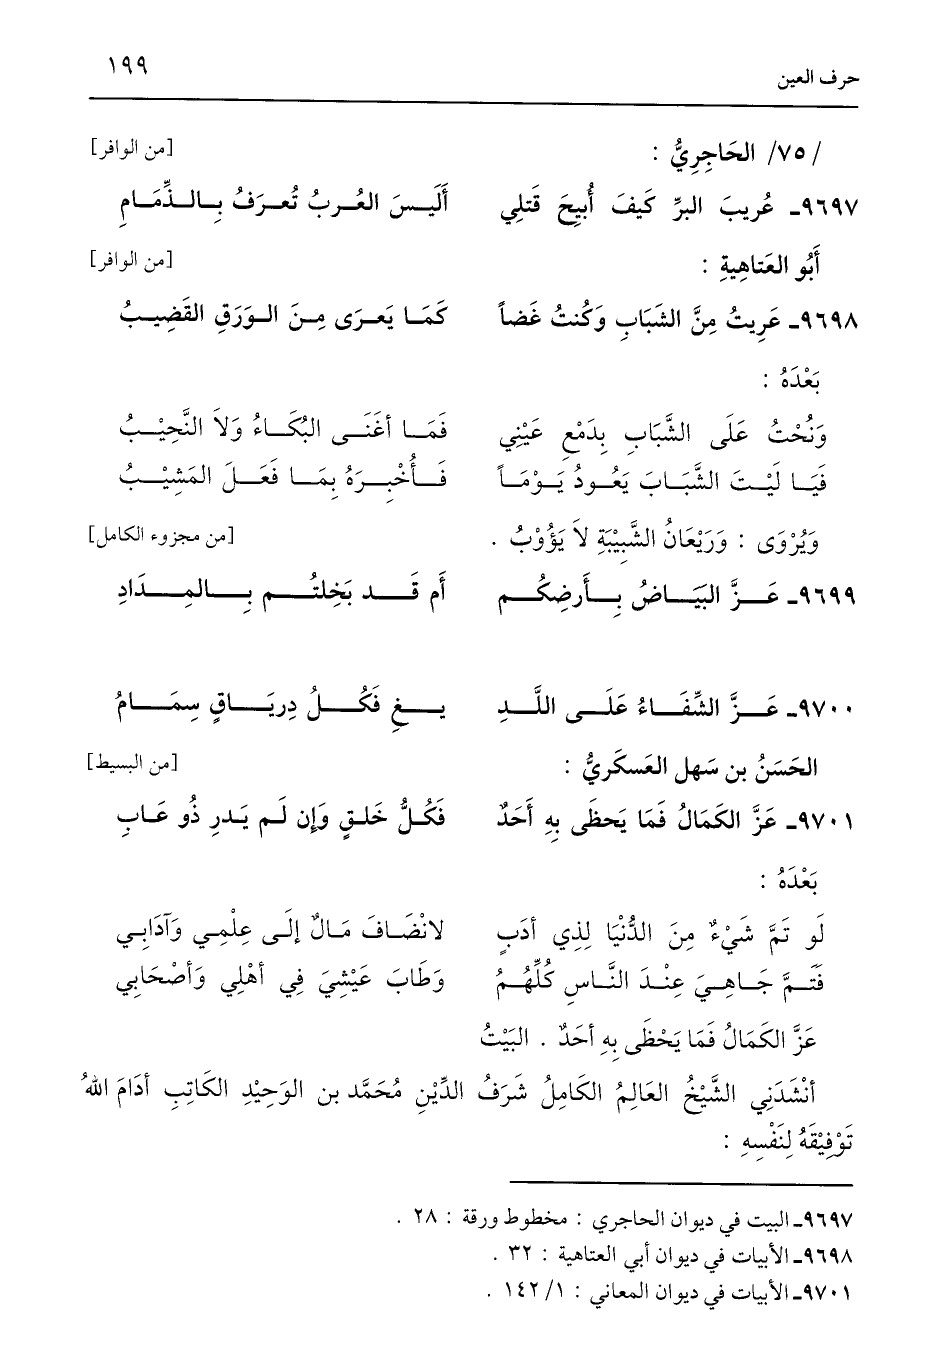 حرف العين ١٩٩
/ ٧٥/ الحَاجِرِيُّ : [من الوافر]
٩٦٩٧ـ عُريبَ البرِّ كَيفَ أُبيحَ قَتلِي أَلَيسَ العُربُ تُعرَفُ بِالذِّمَامِ
أَبُو العَتاهِيةِ : [من الوافر]
٩٦٩٨ـ عَرِيتُ مِنَّ الشَّبَابِ وَكُنتُ غَضاً كَمَا يَعرَى مِنَ الوَرَقِ القَضِيبُ
بَعْدَهُ :
وَنُحْتُ عَلَى الشَّبَابِ بِدَمْعِ عَيْنِي فَمَا أغَنَى البُكَاءُ وَلاَ النَّحِيْبُ
فَيَا لَيْتَ الشَّبَابَ يَعُودُ يَوْمَاً فَأُخْبِرَهُ بِمَا فَعَلَ المَشِيْبُ
وَيُرْوَى : وَرَيْعَانُ الشَّبِيْبَةِ لاَ يَؤُوْبُ . [من مجزوء الكامل]
٩٦٩٩ـ عَزَّ البَيَاضُ بِأَرضِكُم أَم قَد بَخِلتُم بِالمِدَادِ
٩٧٠٠ـ عَزَّ الشِّفَاءُ عَلَى اللَّدِ يغِ فَكُلُ دِريَاقٍ سِمَامُ
الحَسَنُ بن سَهل العَسكَريُّ : [من البسيط]
٩٧٠١ـ عَزَّ الكَمَالُ فَمَا يَحظَى بِهِ أَحَدٌ فَكُلُّ خَلقٍ وَإن لَم يَدرِ ذُو عَابِ
بَعْدَهُ :
لَو تَمَّ شَيْءٌ مِنَ الدُّنْيَا لِذِي أدَبٍ لانْضَافَ مَالٌ إلَى عِلْمِي وَآدَابِي
فَتَمَّ جَاهِيَ عِنْدَ النَّاسِ كُلِّهُمُ وَطَابَ عَيْشِيَ فِي أهْلِي وَأصْحَابِي
عَزَّ الكَمَالُ فَمَا يَحْظَى بِهِ أحَدٌ . البَيْتُ
أنْشَدَنِي الشَّيْخُ العَالِمُ الكَامِلُ شَرَفُ الدِّيْنِ مُحَمَّد بن الوَحِيْدِ الكَاتِبِ أدَامَ اللهُ
تَوْفِيْقَهُ لِنَفْسِهِ :
٩٦٩٧ـ البيت في ديوان الحاجري : مخطوط ورقة : ٢٨ .
٩٦٩٨ـ الأبيات في ديوان أبي العتاهية : ٣٢ .
٩٧٠١ـ الأبيات في ديوان المعاني : ١/ ١٤٢ .